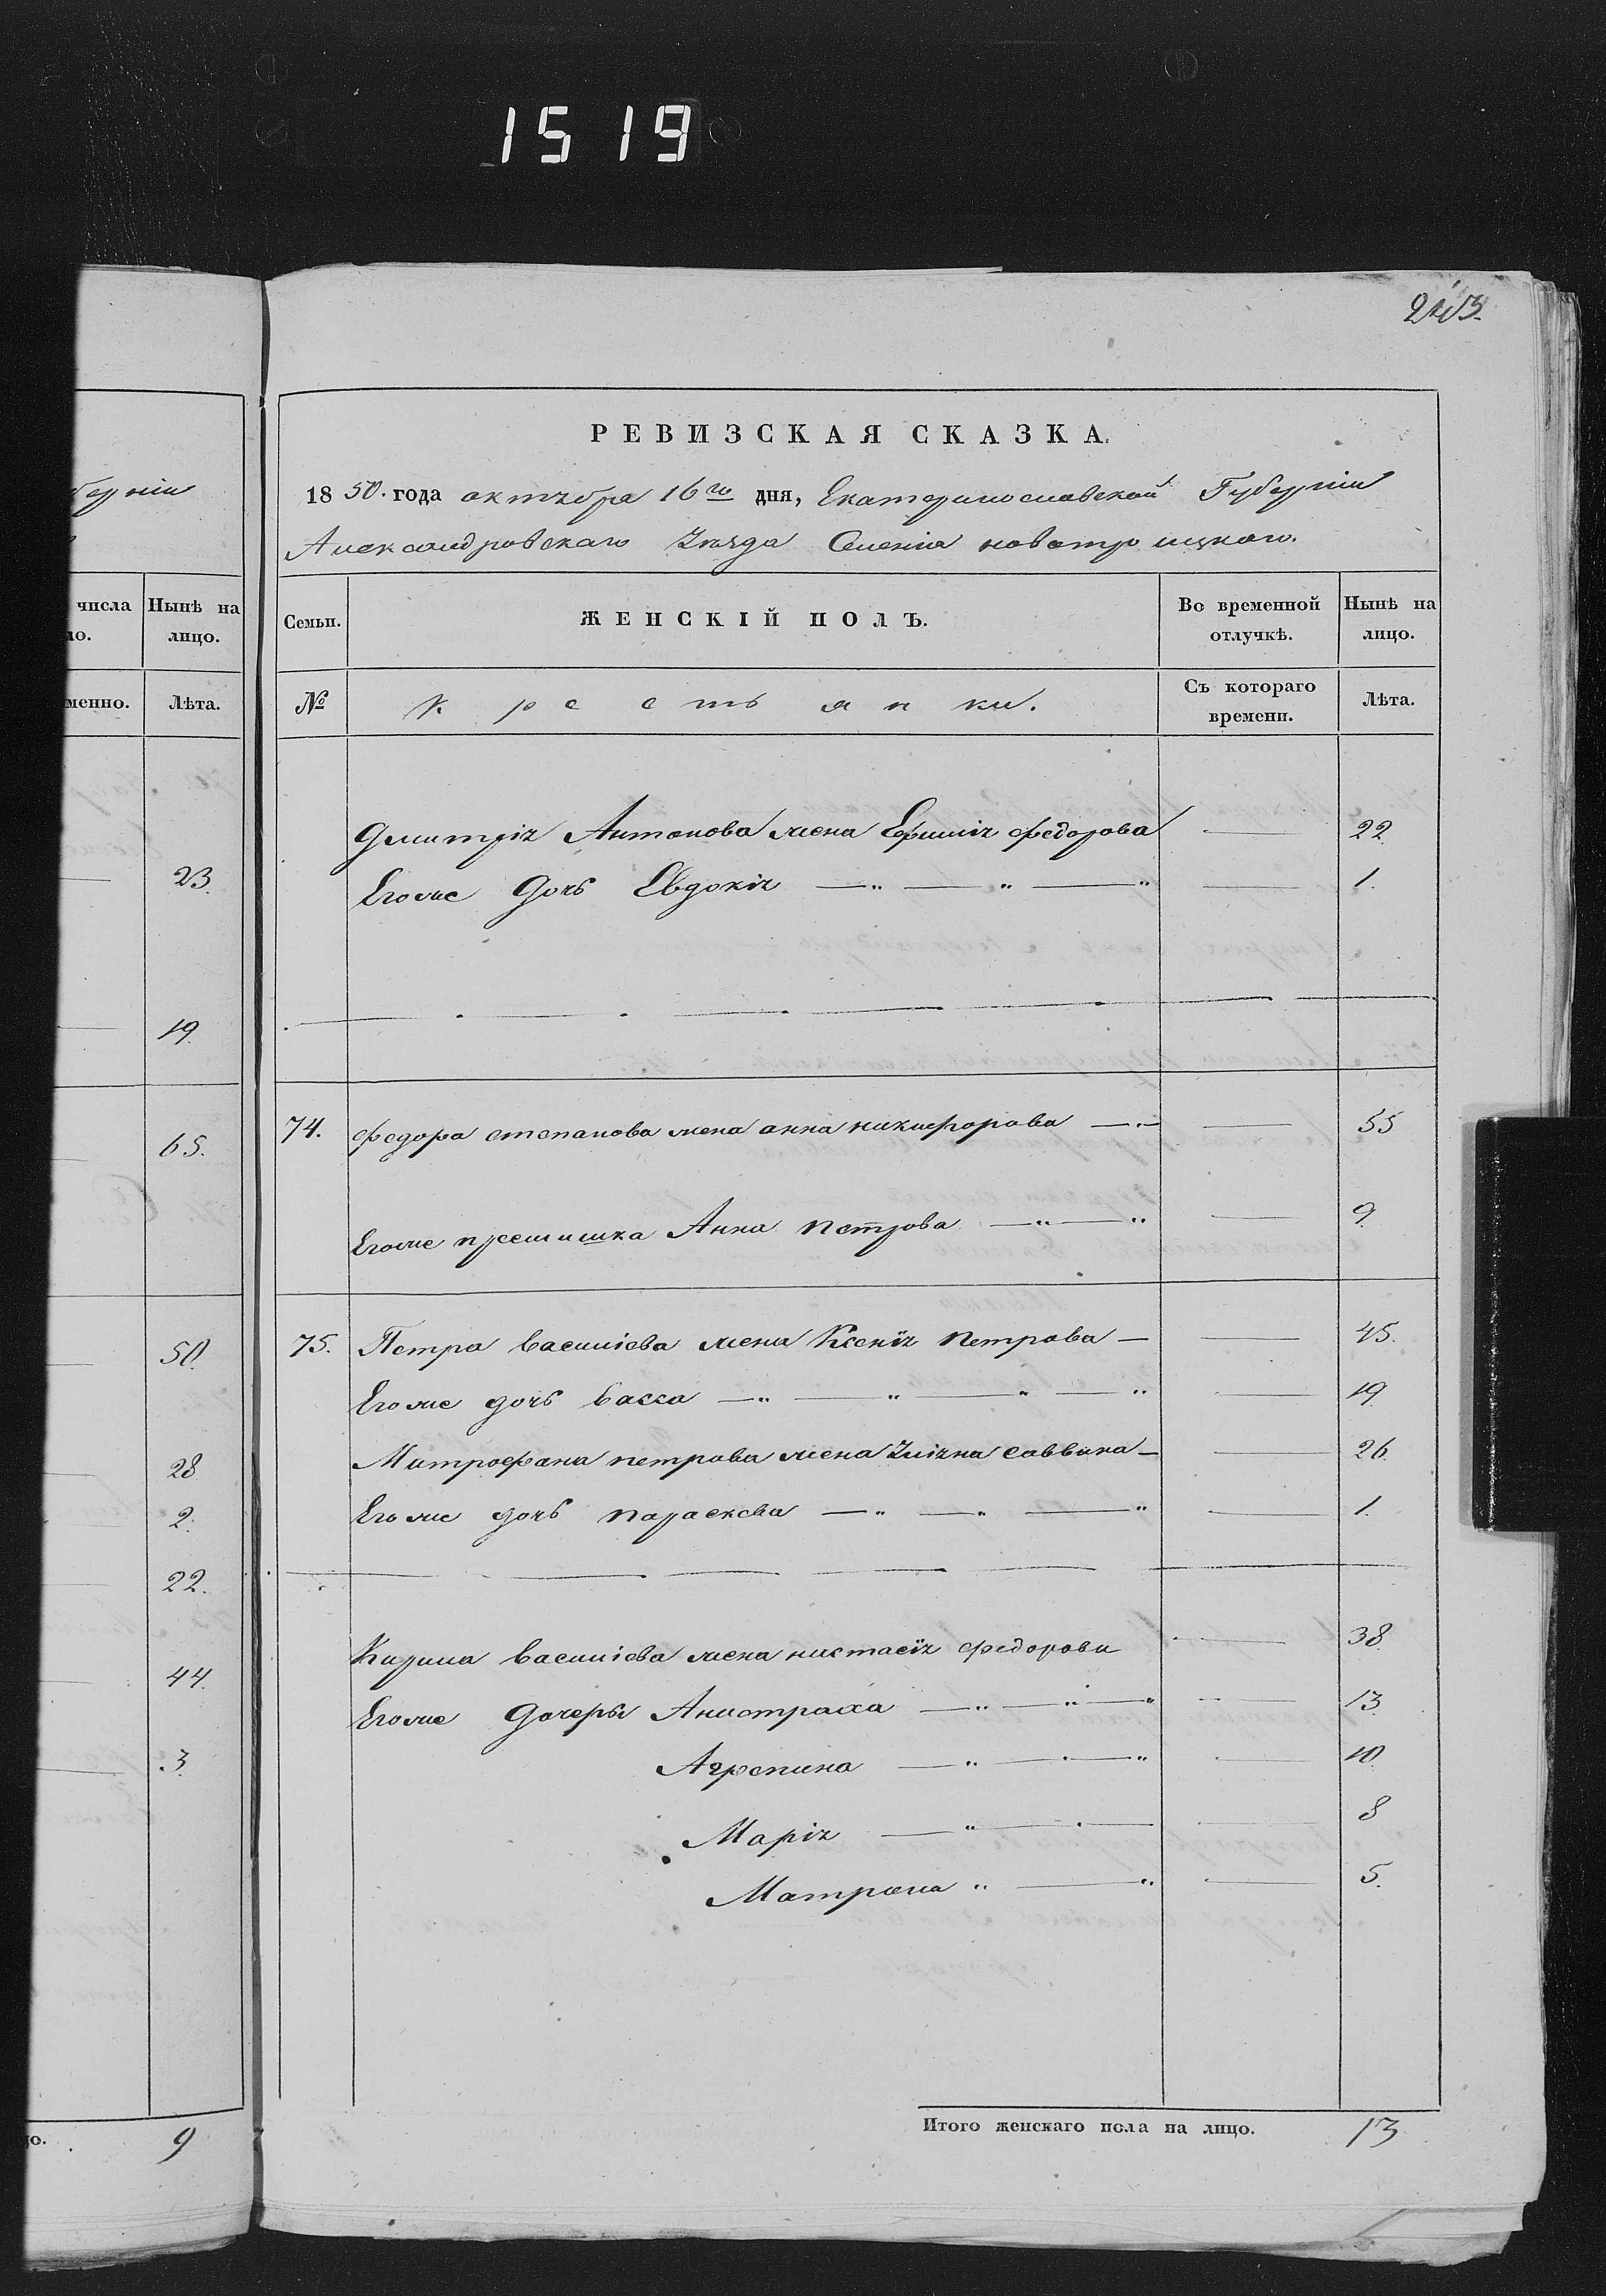 1519
213.
РЕВИЗСКАЯ СКАЗКА.
1850. года октября 16го дня, Екатеринославской Губерніи
Александровскаго Уѣзда Селенія новотроицкаго.
числа
Нынѣ на
лицо.
менно.
Лѣта.
23.
19.
65.
50.
28
2.
22.
44.
3.
9
Семьи.
ЖЕНСКІЙ ПОЛЪ.
Во временной
отлучкѣ.
Нынѣ на
лицо.
№
Крестьянки.
Съ котораго
времени.
Лѣта.
Дмитрія Антонова жена Ефимія федорова 22.
Егоже Дочь Евдокія 1.
74. федора степанова жена анна никифорова 55
Егоже Анна петрова 9.
75. Петра василіева жена Ксенія петрова 45.
Егоже дочь васса 19.
Митрофана петрова жена Уліяна саввина 26.
Егоже дочь параскева 1.
Кирила василіева жена настасія федорова 38.
Егоже Дочеры 13.
Агрепина 10.
Марія 8
Матрона 5.
Итого женскаго пола на лицо. 13